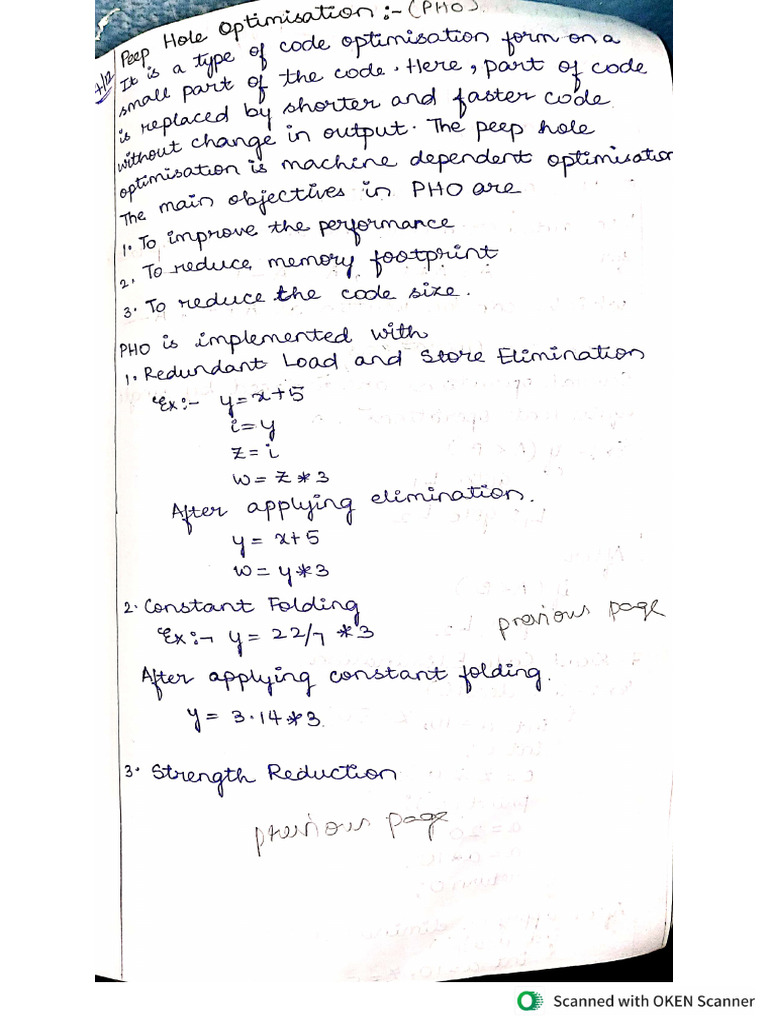 Peep Hole Optimisation :- (PHO).
7/12
It is a type of code optimisation form on a
small part of the code. Here, part of code
is replaced by shorter and faster code
without change in output. The peep hole
optimisation is machine dependent optimisation
The main objectives in PHO are
1. To improve the performance
2. To reduce memory footprint
3. To reduce the code size.
PHO is implemented with
1. Redundant Load and Store Elimination
Ex:- y=x+5
i=y
z=i
w=z*3
After applying elimination.
y=x+5
w=y*3
2. Constant Folding
previous page
Ex:- y=22/7 *3
After applying constant folding.
y=3.14*3.
3. Strength Reduction
previous page
Scanned with OKEN Scanner